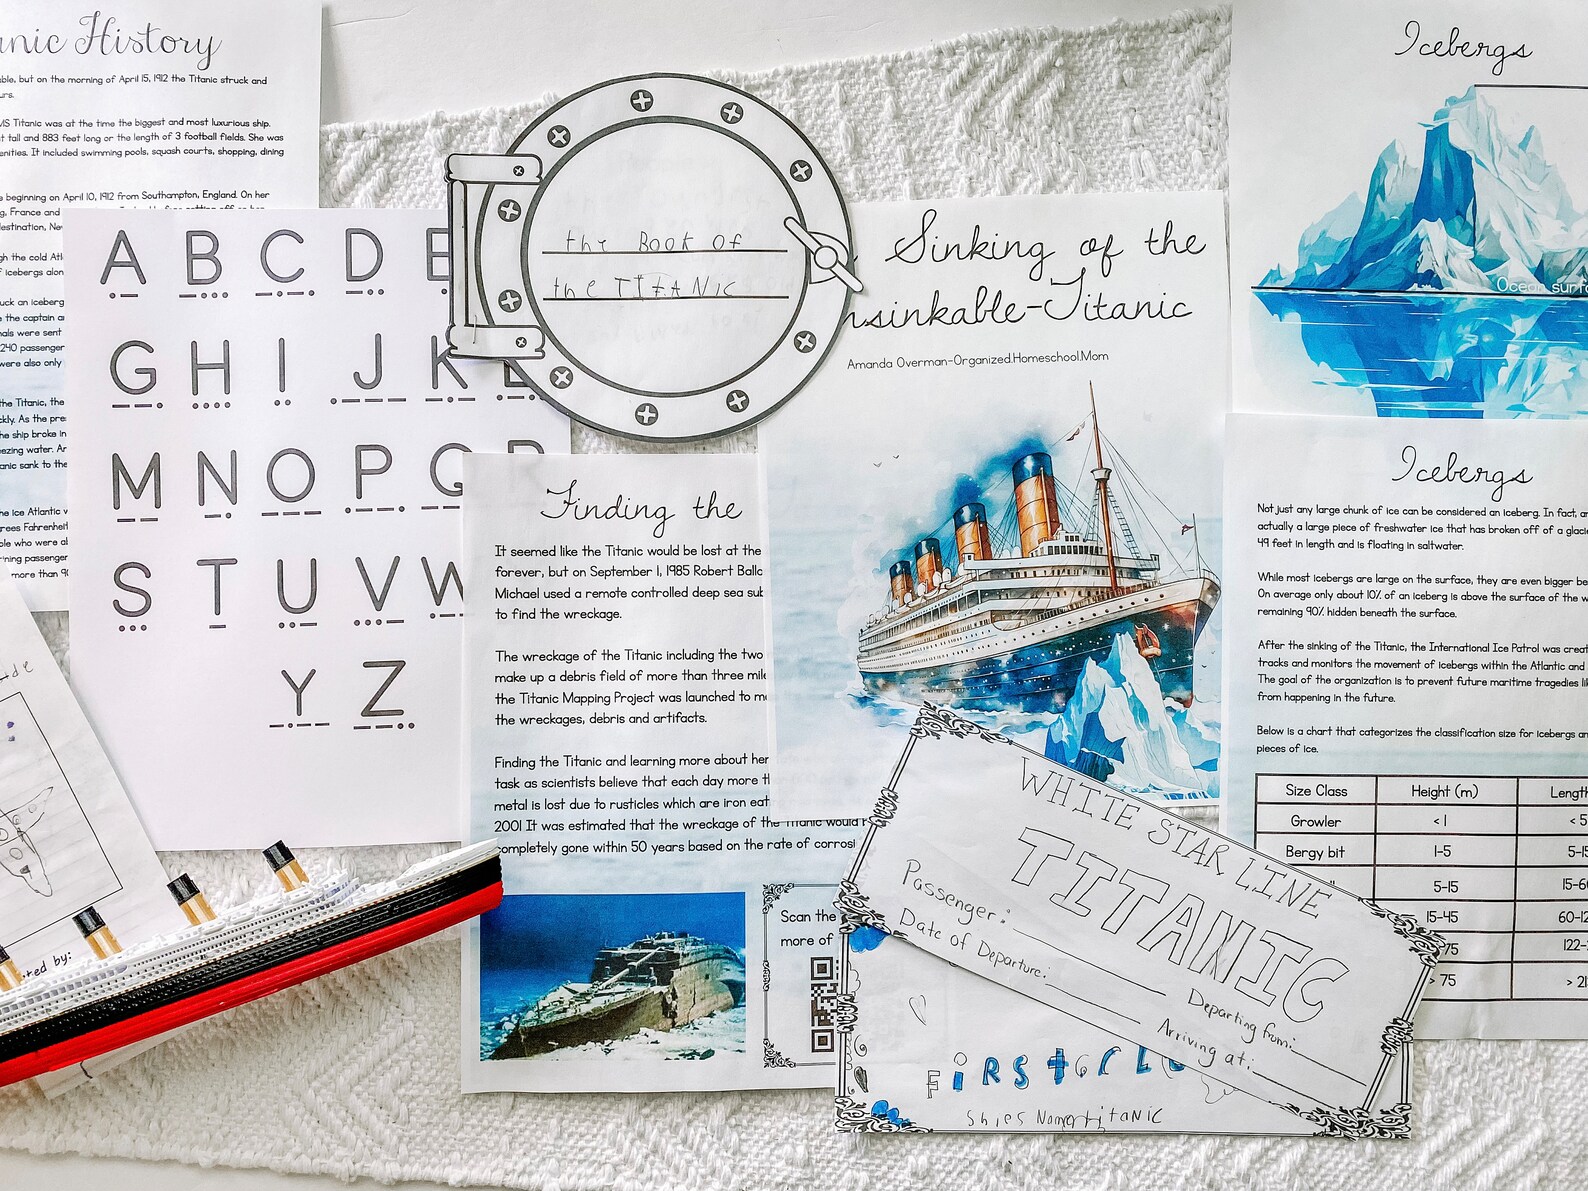 nic History
ble, but on the morning of April 15, 1912 the Titanic struck and
urs.
MS Titanic was at the time the biggest and most luxurious ship.
t tall and 883 feet long or the length of 3 football fields. She was
enities. It included swimming pools, squash courts, shopping, dining
e beginning on April 10, 1912 from Southampton, England. On her
g, France and
destination, Ne
gh the cold Atl
f icebergs alon
uck an iceberg
e the captain a
nals were sent
240 passenger
were also only
the Titanic, the
ckly. As the pre
the ship broke in
eezing water. Ar
anic sank to the
he ice Atlantic w
rees Fahrenheit
ple who were ab
ining passenger
more than 90
A B C D E
G H I J K L
M N O P Q R
S T U V W
Y Z
the Book of
the TITANIC
Sinking of the
nsinkable-Titanic
Amanda Overman-Organized.Homeschool.Mom
Icebergs
Ocean surfa
Finding the
It seemed like the Titanic would be lost at the
forever, but on September 1, 1985 Robert Balla
Michael used a remote controlled deep sea sub
to find the wreckage.
The wreckage of the Titanic including the two
make up a debris field of more than three mile
the Titanic Mapping Project was launched to ma
the wreckages, debris and artifacts.
Finding the Titanic and learning more about her
task as scientists believe that each day more th
metal is lost due to rusticles which are iron eat
2001 It was estimated that the wreckage of the Titanic would
completely gone within 50 years based on the rate of corrosi
Scan the
more of
Icebergs
Not just any large chunk of ice can be considered an iceberg. In fact, an
actually a large piece of freshwater ice that has broken off of a glacie
49 feet in length and is floating in saltwater.
While most icebergs are large on the surface, they are even bigger be
On average only about 10% of an iceberg is above the surface of the w
remaining 90% hidden beneath the surface.
After the sinking of the Titanic, the International Ice Patrol was creat
tracks and monitors the movement of icebergs within the Atlantic and
The goal of the organization is to prevent future maritime tragedies lik
from happening in the future.
Below is a chart that categorizes the classification size for icebergs an
pieces of ice.
Size Class Height (m) Lengt
Growler <1 <5
Bergy bit 1-5 5-15
5-15 15-60
15-45 60-12
75 122-
> 75 > 21
WHITE STAR LINE
TITANIC
Passenger:
Date of Departure:
Departing from:
Arriving at:
FiRSt CL
Titanic
ted by: